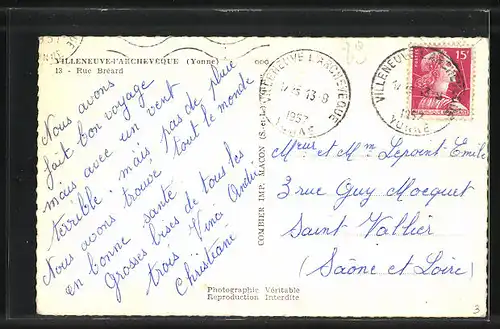 VILLENEUVE-l'ARCHEVÊQUE (Yonne)
13 - Rue Bréard
Nous avons
fait bon voyage
mais avec un vent
terrible. mais pas de pluie
Nous avons trouvé tout le monde
en bonne santé
Grosses bises de tous les
trois Vinci André
Christiane
COMBIER IMP. MACON
VILLENEUVE L'ARCHEVEQUE
13-8
1957
YONNE
VILLENEUVE
1957
YONNE
15F
Mʳ et Mᵐ Lepoint Emile
3 rue Guy Mocquet
Saint Vallier
(Saône et Loire)
Photographie Véritable
Reproduction Interdite
3